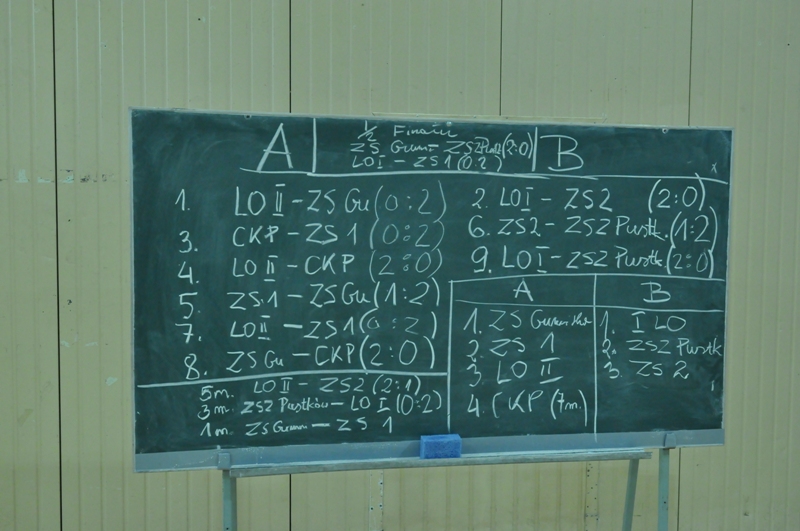 A
1/2 Finału
ZS Gumn - ZSZ Pustk (2:0)
LO I - ZS 1 (0:2)
B
1. LO II - ZS Gu (0:2)
3. CKP - ZS 1 (0:2)
4. LO II - CKP (2:0)
5. ZS.1 - ZSGu (1:2)
7. LO II - ZS1 (0:2)
8. ZSGu - CKP (2:0)
2. LO I - ZS2 (2:0)
6. ZS2 - ZSZ Pustk. (1:2)
9. LO I - ZSZ Pustk (2:0)
A
1. ZS
2. ZS 1
3 LO II
4. CKP (7m.)
B
1. I LO
2. ZSZ Pustk
3. ZS 2
5m. LO II - ZS2 (2:1)
3m. ZSZ Pustków - LO I (0:2)
1m. ZS Gumn - ZS 1